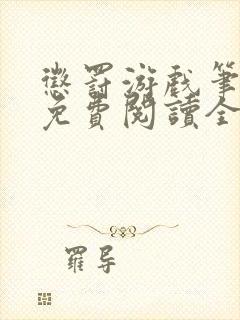 懲罰游戲筆
免費閱讀全
羅导